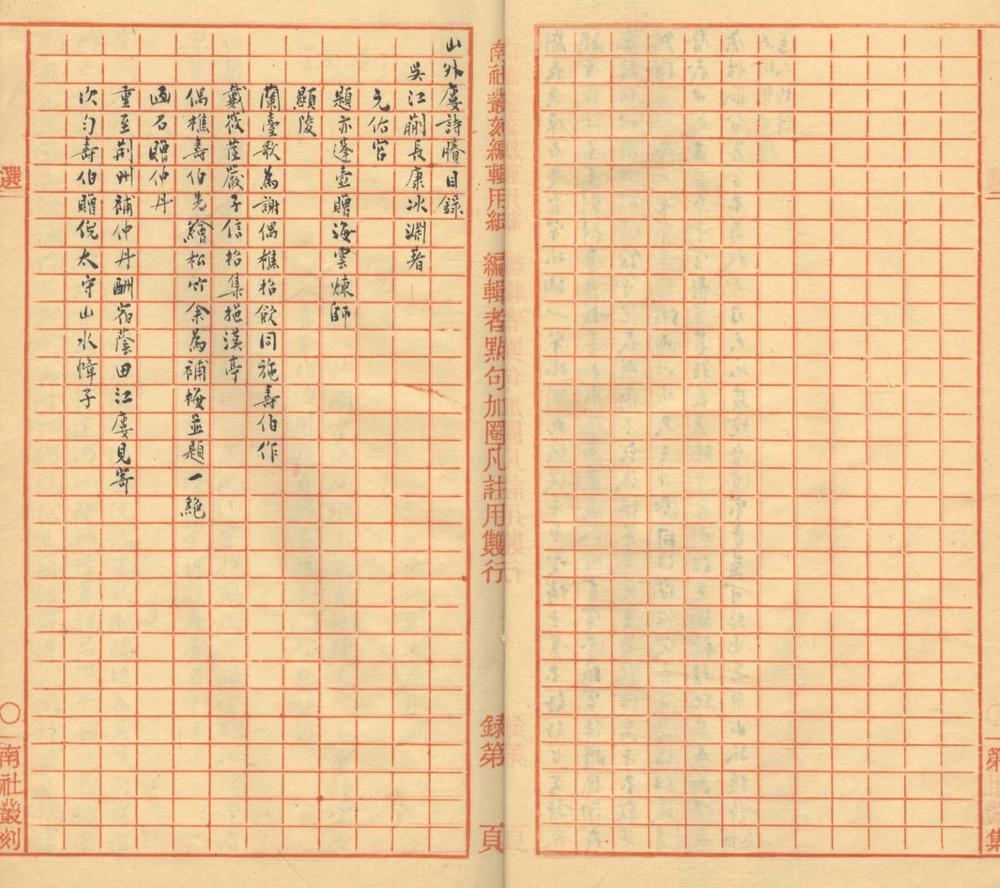 山外廔詩賸目錄
吳江蒯長康冰淵著
元佑宮
題亦蓬壺贈海雲煉師
顯陵
蘭臺歌為謝偶樵招飲同施壽伯作
戴筱荃嚴子信招集挹漢亭
偶樵壽伯先繪松竹余為補梅並題一絕
画石贈仲丹
重至荊州補仲丹酬宿蔭田江廔見寄
次勻壽伯贈倪太守山水幛子
南社叢刻編輯用紙 編輯者點句加圈凡註用雙行
錄第 頁
選
○南社叢刻
第 集